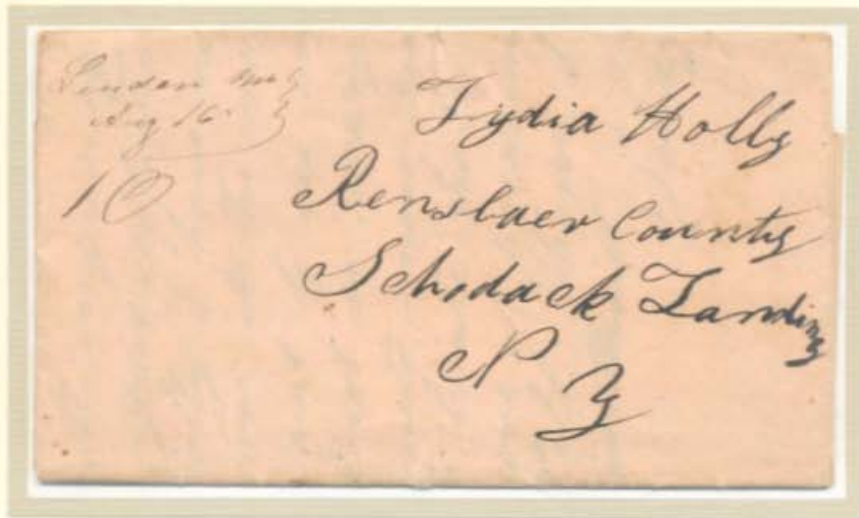 Linden
Aug 16
10
Lydia Holly
Renslaer County
Schodack Landing
N Y